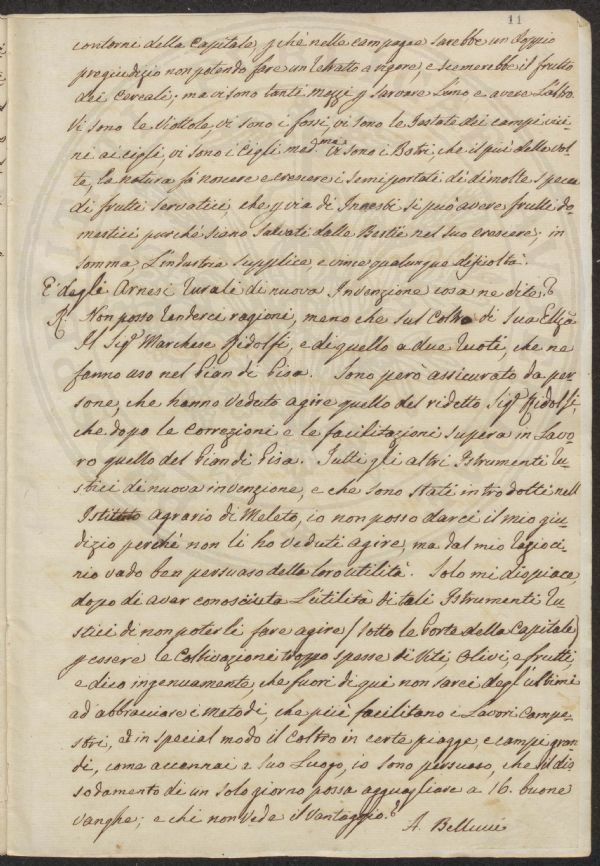 11
contorni della Capitale, p chè nelle campagne sarebbe un doppio
pregiudizio non potendo fare un letrato a vigore, e scemerebbe il frutto
dei Cereali; ma vi sono tanti Mezzi p sarvare l'uno e avere l'altro.
Vi sono le Viottole, vi sono i fossi, vi sono le Testate dei campi vici=
ni ai cigli, vi sono i Cigli med.mi Ci sono i Botri, che il più delle vol=
te, la natura fà nascere e crescere i semi portati di dimolte specie
di frutti servatici, che p via di Innesti si può avere frutti do=
mestici purchè siano salvati dalle Bestie nel suo crescere; in
somma, L'industria supplice, e vince qualunque dificoltà.
E' degli Arnesi Rurali di nuova Invenzione cosa ne dite.?
R. Non posso renderci ragioni, meno che sul Coltro di Sua Ellza
Il Sigr Marchese Ridolfi, e di quello a due ruote, che ne
fanno uso nel Pian di Pisa. Sono però assicurato da per=
sone, che hanno veduto agire quello del ridetto Sigr Ridolfi
che dopo le Correzioni e le facilitazioni supera in Lavo=
ro quello del Pian di Pisa. Tutti gli altri Istrumenti Ru=
stici di nuova invenzione, e che sono stati introdotti nell
Istituto agrario di Meleto, io non posso darci il mio giu=
dizio perché non li ho veduti agire, ma dal mio raziocí=
nio vado ben persuaso della loro utilità. Solo mi dispiace,
dopo di aver conosciuta L'utilità di tali Istrumenti Ru=
stici di non poterli fare agire (sotto le Porte della Capitale)
p essere le Coltivazioni troppo spesse di Viti, Olivi, e frutti,
e dico ingenuamente, che fuori di qui non sarei degl'ultimi
ad abbracciare i Metodi, che più facilitano i Lavori Campe=
stri, ed in special modo il Coltro in certe piagge, e campi gran=
di, come accennai a suo Luogo, io sono persuaso, che il dis=
sodamento di un solo giorno possa agguagliare a 16. buone
vanghe; e chi non vede il vantaggio.?
A. Bellucci